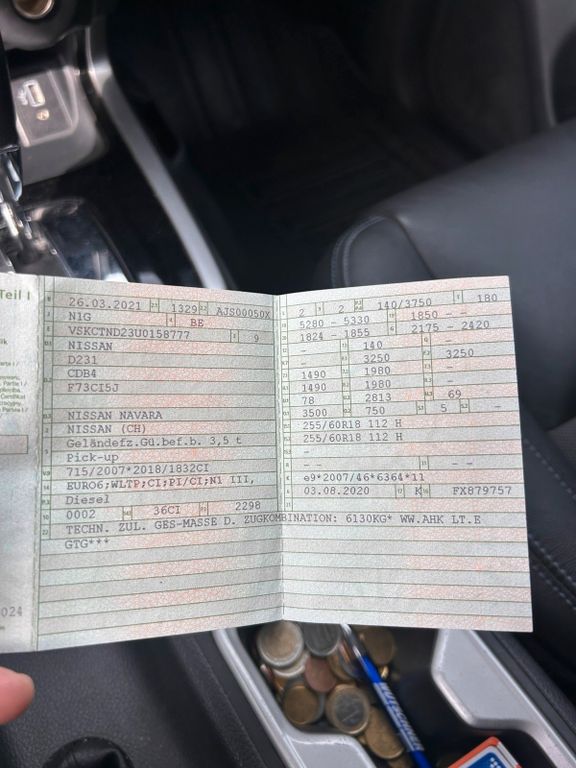 Teil I
26.03.2021 1329 AJS00050X
N1G BE
VSKCTND23U0158777 9
NISSAN
D231
CDB4
F73CI5J
NISSAN NAVARA
NISSAN (CH)
Geländefz.Gü.bef.b. 3,5 t
Pick-up
715/2007*2018/1832CI
EURO6;WLTP;CI;PI/CI;N1 III,
Diesel
0002 36CI 2298
TECHN. ZUL. GES-MASSE D. ZUGKOMBINATION: 6130KG* WW.AHK LT.E
GTG***
2 2 140/3750 180
5280 - 5330 1850 - -
1824 - 1855 2175 - 2420
- 140 -
- 3250 3250
1490 1980 -
1490 1980 -
78 2813 69
3500 750 5 -
255/60R18 112 H
255/60R18 112 H
- - -
-
e9*2007/46*6364*11
03.08.2020 K FX879757
024